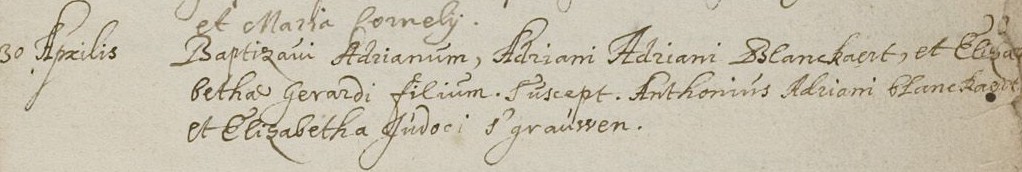 et Maria Cornelij.
30 Aprilis Baptizavi Adrianum, Adriani Adriani Blanckaert, et Eliza
bethæ Gerardi filium. Suscept. Anthonius Adriani blanckaert
et Elizabetha Judoci s'grauwen.